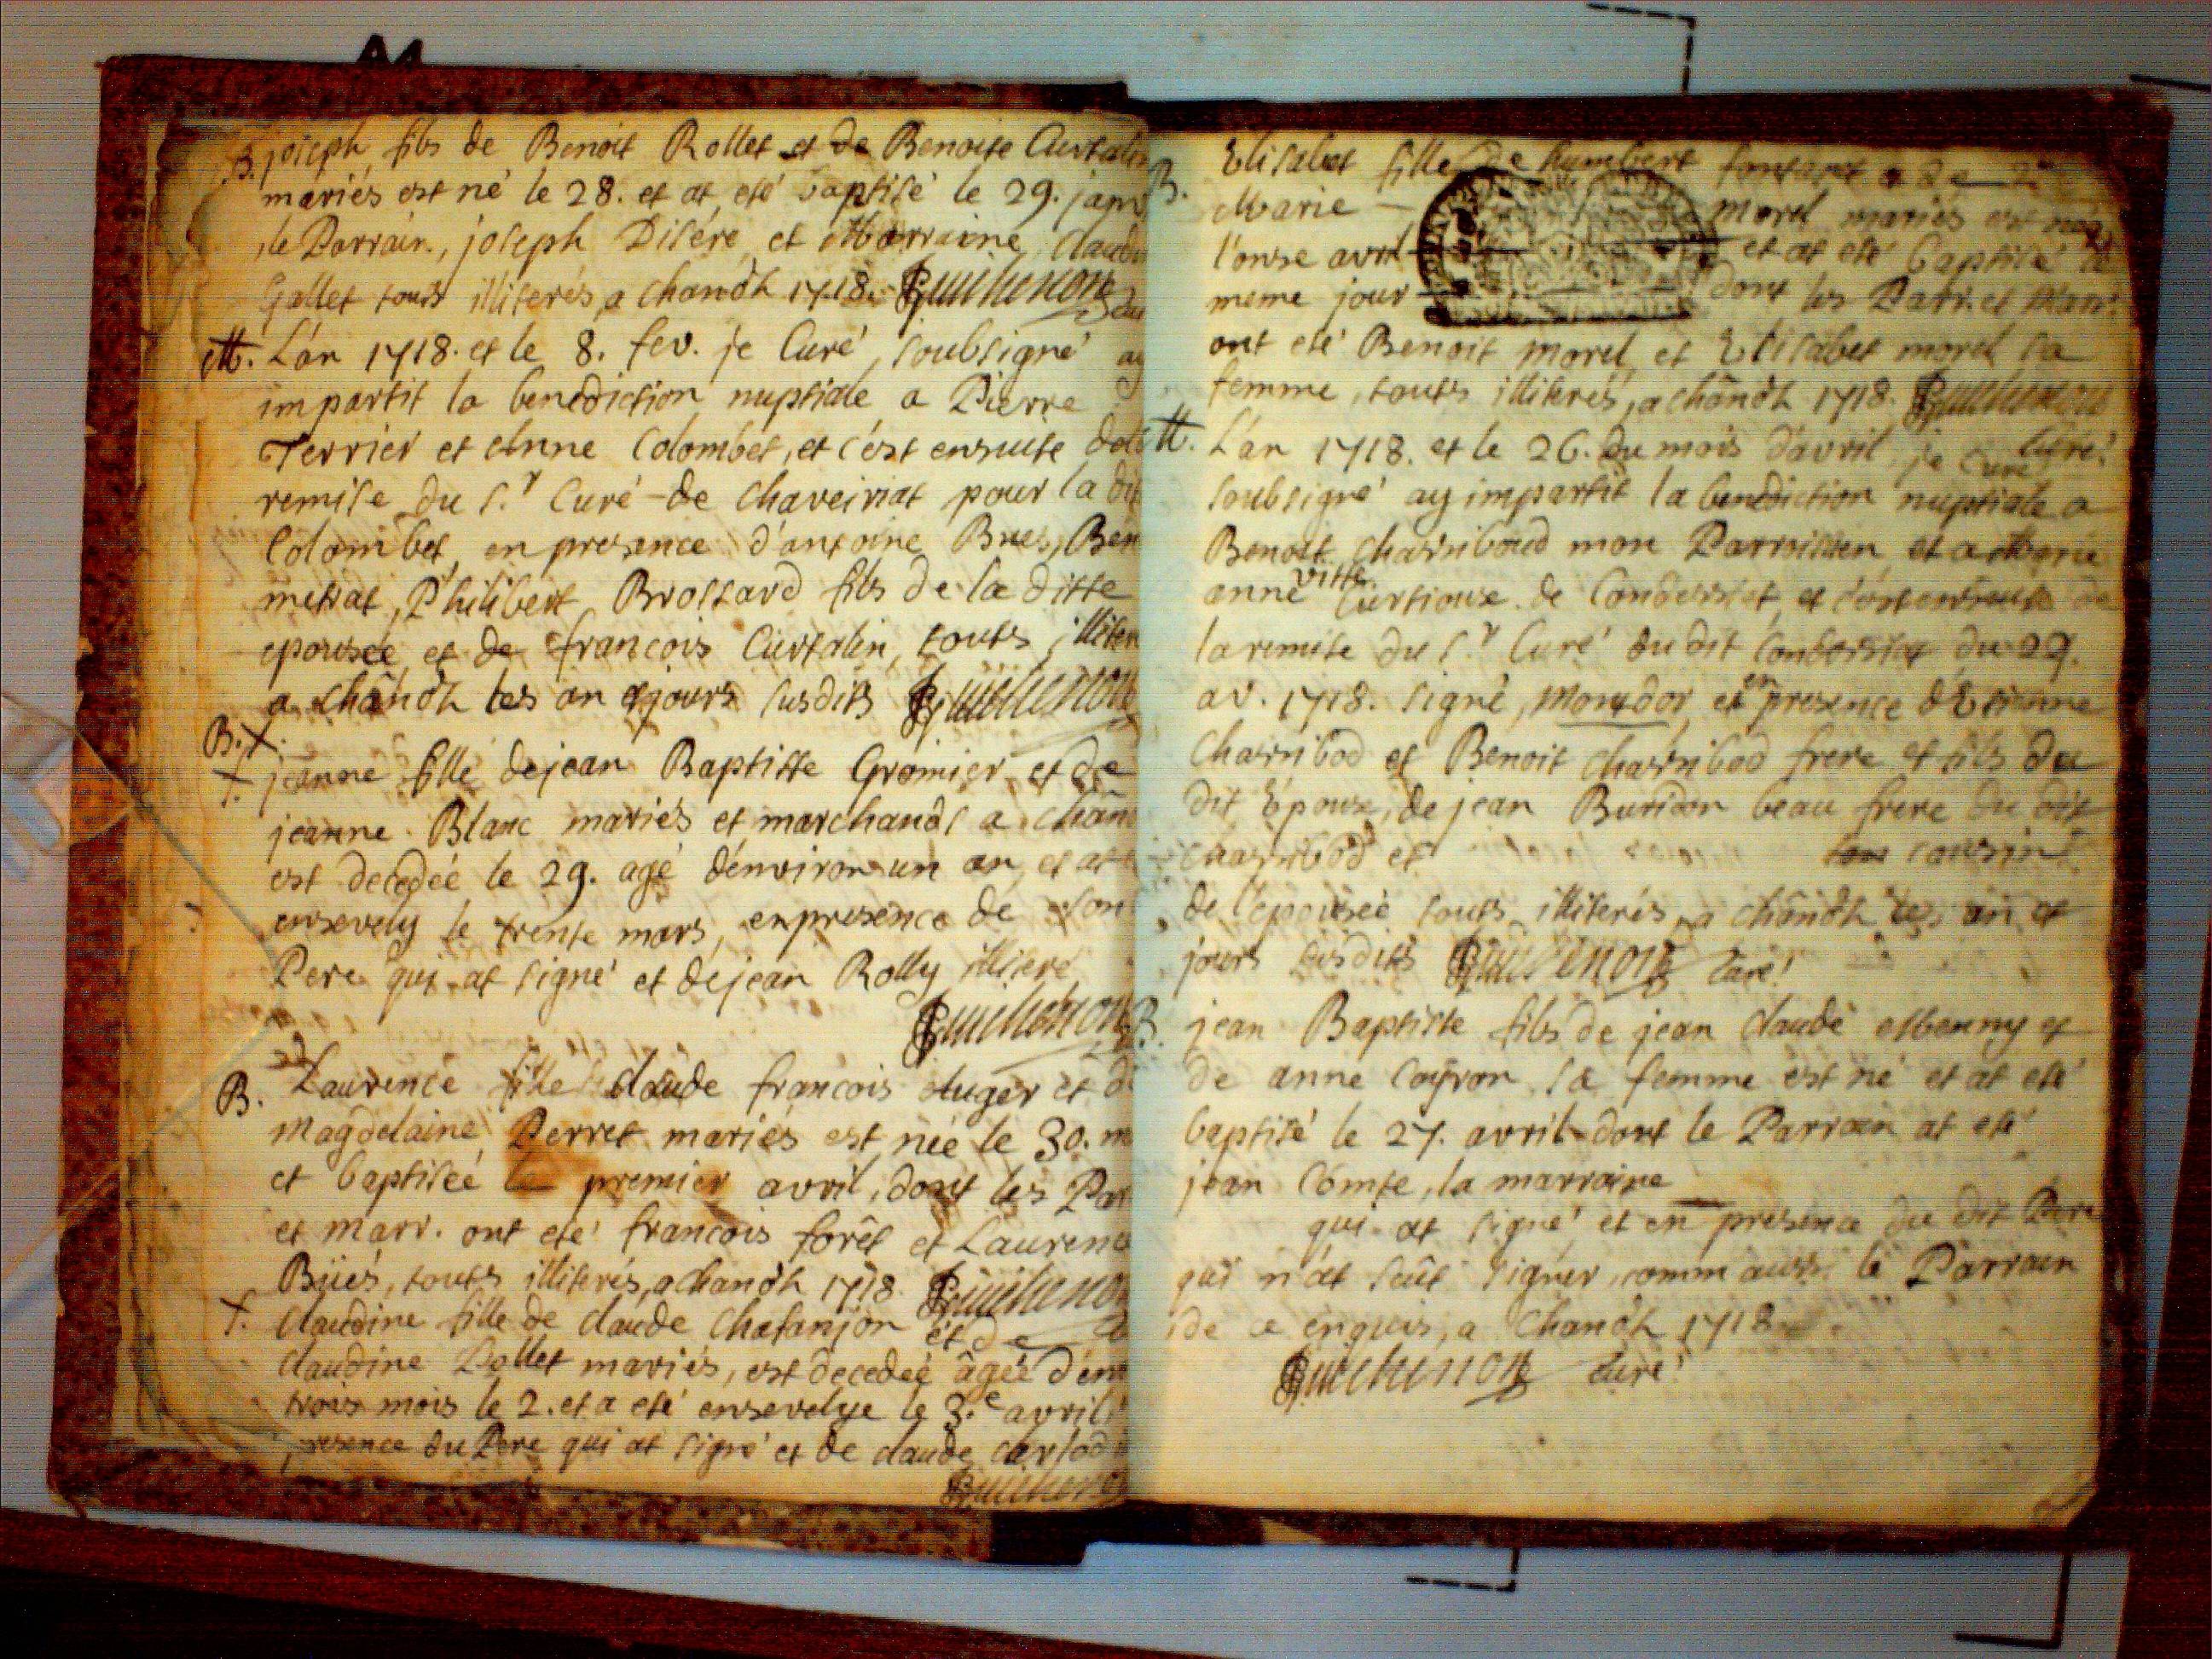 B. joseph fils de Benoit Rollet et de Benoite Curtalin
mariés est né le 28. et at eté baptisé le 29. janv
le Parrain, joseph Disére et Marraine claudi
Gallet touts illiterés, a chandh 1718. Guichenon
M. L'an 1718. et le 8. fev. je Curé, soubsigné ay
impartit la benediction nuptiale a Pierre
Terrier et Anne Colombet, et c'est ensuite de la
remise du s.r Curé de Chaveiriat pour la dit
Colombet, en presence d'antoine Bues, Ben
metrat, Philibert Brossard fils de la ditte
epousée et de francois Curtalin, touts illiter
a chândh les an et jours susdits Guichenon
B. +.
+. jeanne fille de jean Baptiste Gromier et de
jeanne Blanc mariés et marchands a chân
est decedée le 29. agé d'environ un an, et at
ensevely le trente mars, en presence de son
Pere qui at signé et de jean Rolly illiteré
Guichenon
B. Laurence fille claude francois Auger et d
Magdelaine Perret mariés est née le 30. m
et baptisée le premier avril, dont les Par
et marr. ont eté francois forêt et Laurence
Büés, touts illiterés, a chandh 1718. Guichenon
+. claudine fille de claude Chatanjon et de
claudine Pollet mariés, est decedeé âgée d'env
trois mois le 2. et a eté ensevelye le 3.e avril
presence du Pere qui at signé et de claude
Guichenon
B. Elisabet fille de humbert fontanet et de
Marie — morel mariés est née
l'onse avril et at eté baptisé le
meme jour dont les Parr. et Marr.
ont eté Benoit morel et Elisabet morel sa
femme, touts illiterés, a chândh 1718. Guichenon
Curé
M. L'an 1718. et le 26. du mois d'avril, je curé
soubsigné ay impartit la benediction nuptiale a
Benoit charnibaud mon Parroissien et a Marie
anne vitte Curtiouse de Condessiat, et c'est ensuite de
la remise du s.r Curé du dit Condessiat du 29.
av. 1718. signé, Monador, et en presence d'Etienne
Charnibod et Benoit charnibod frere et fils du
dit Epoux, de jean Buridon beau frere du dit
charnibod et cousin
de l'epousée touts illiterés, a chândh les an et
jours susdits Guichenon Curé
B. jean Baptiste fils de jean claude et
de anne Coÿron sa femme est né et at eté
baptisé le 27. avril dont le Parrain at eté
jean Comte, la marraine
qui at signé et en presence du dit Pere
qui n'at sçût signer, comm aussi le Parrain
de ce enquis, a Chandh 1718.
Guichenon curé